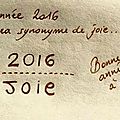 année 2016
sera synonyme de joie..
2016
Joie
Bonne
année
à